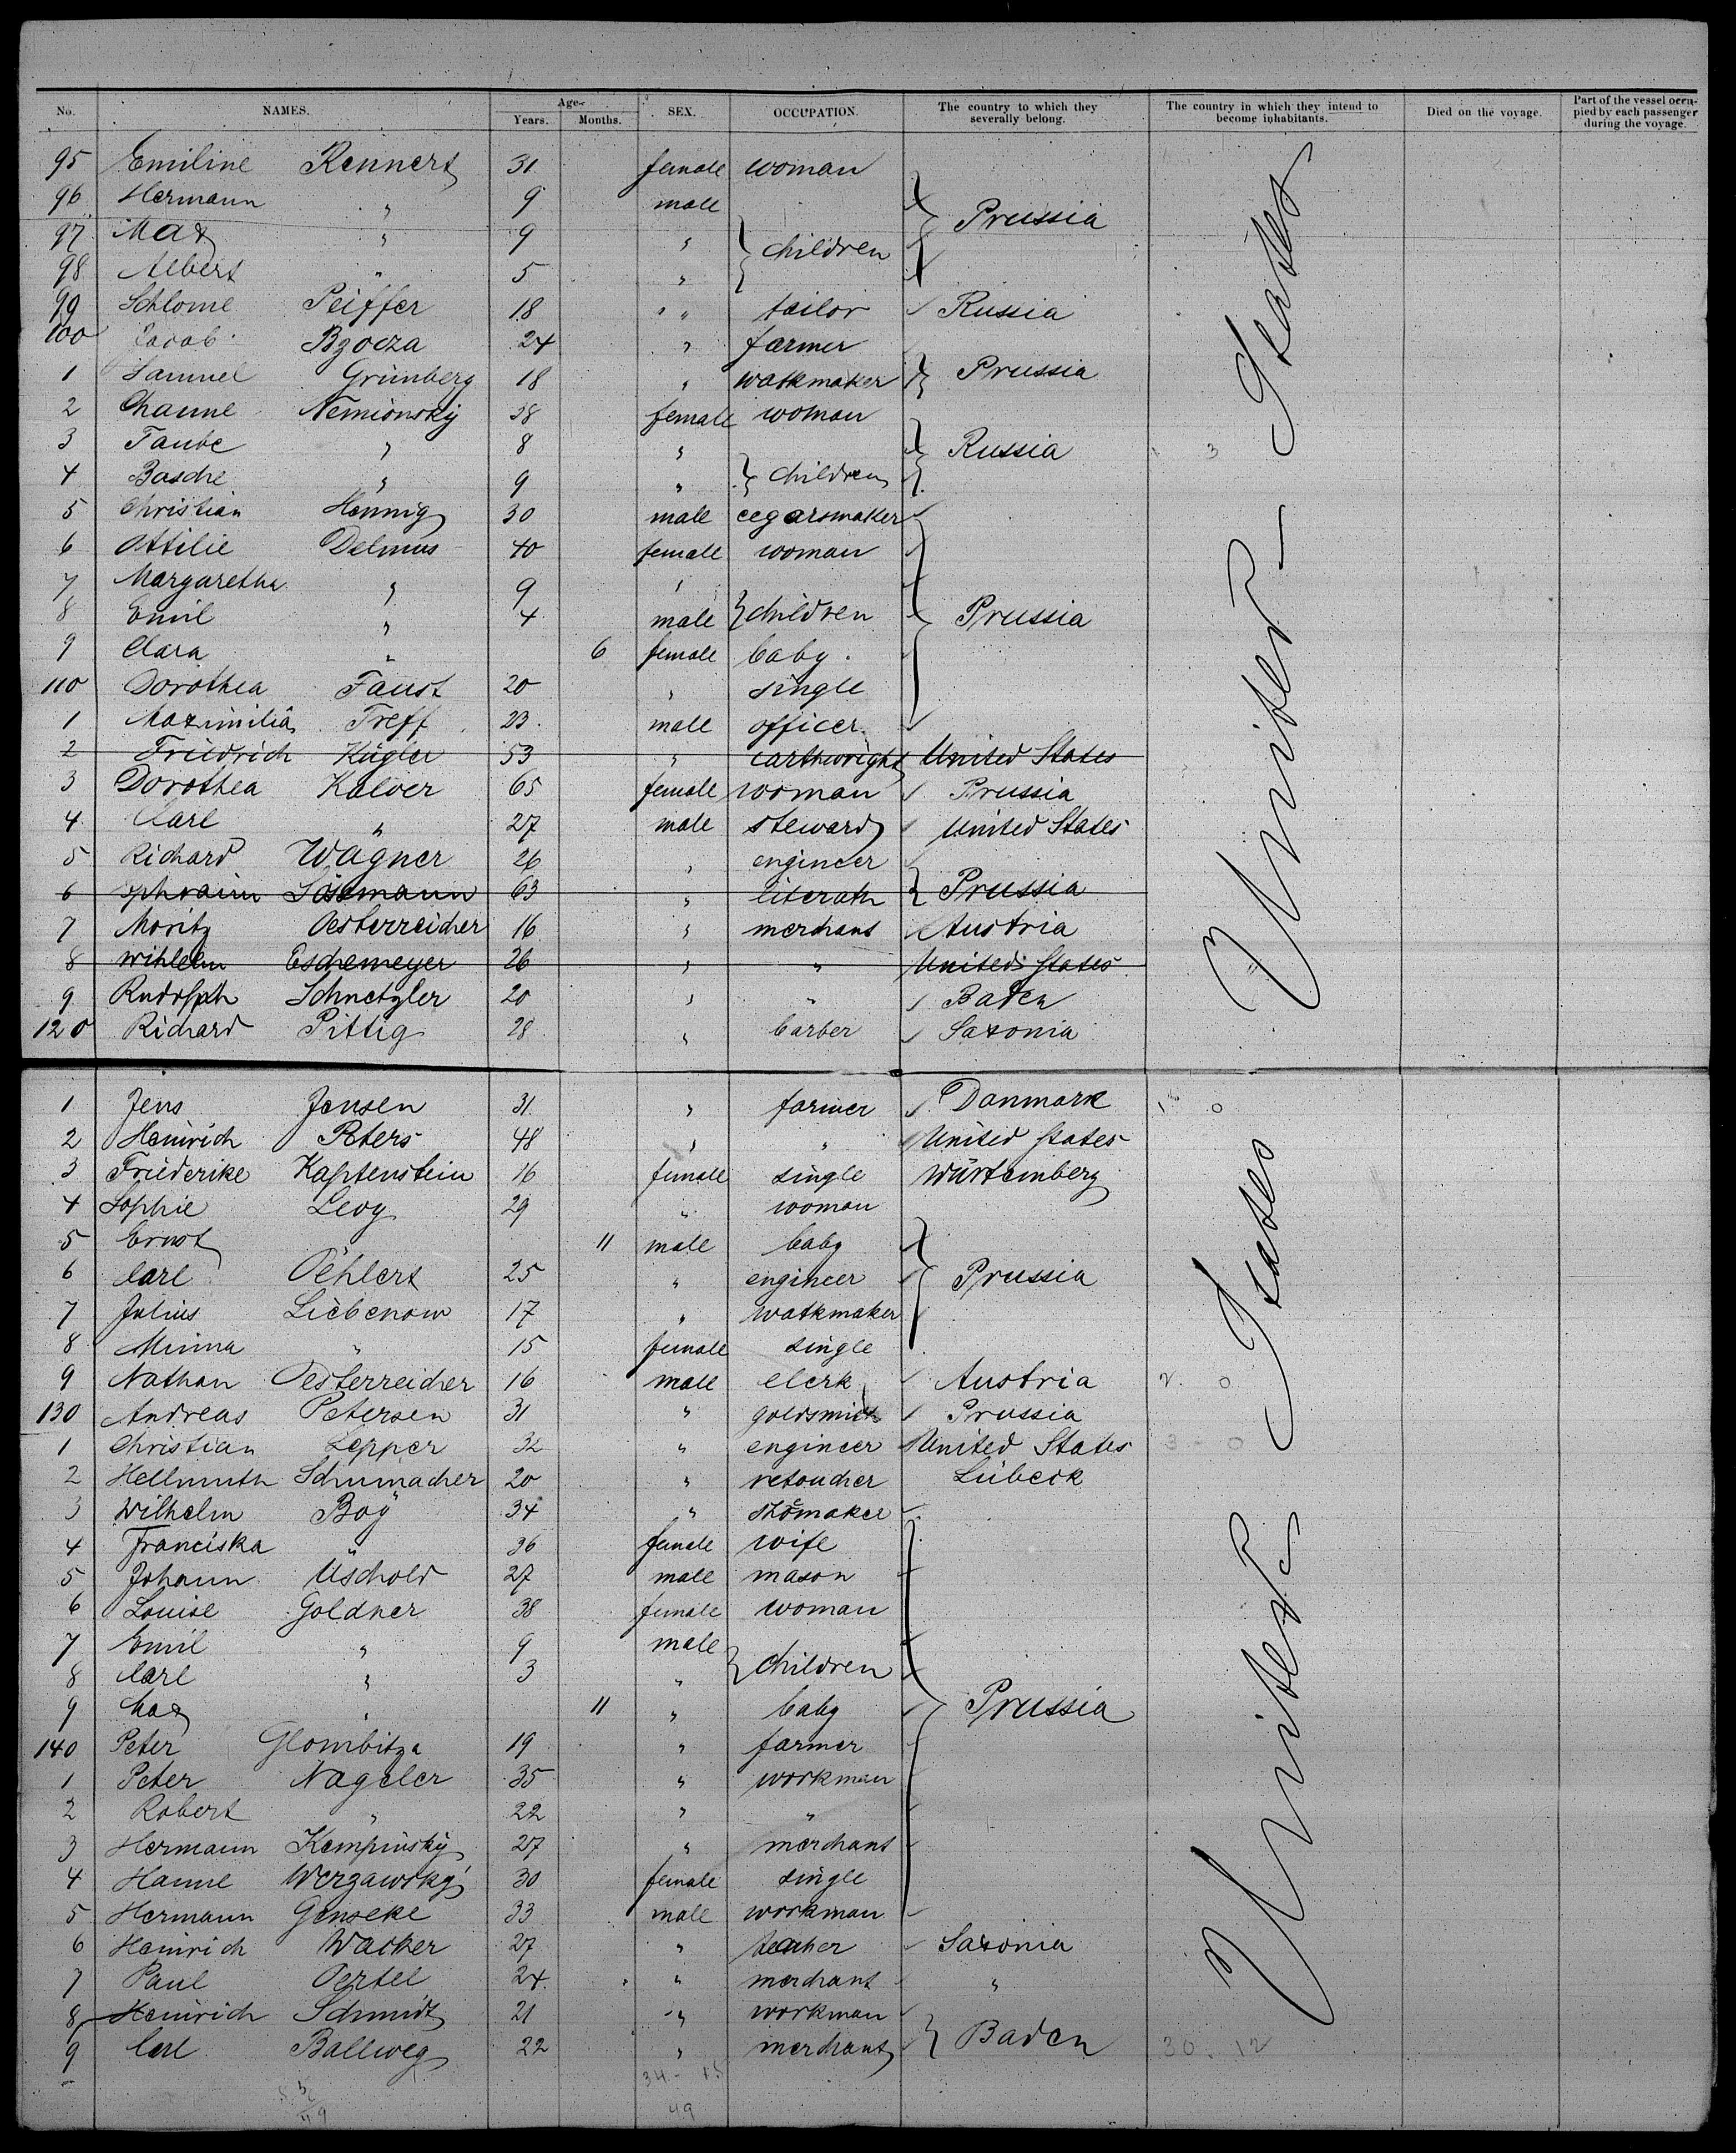 No. NAMES. Age. Years. Months. SEX. OCCUPATION. The country to which they severally belong. The country in which they intend to become inhabitants. Died on the voyage. Part of the vessel occupied by each passenger during the voyage.
95 Emiline Rennert 31 female woman
96 Hermann " 9 male
Prussia
97 Max " 9 "
children
98 Albert " 5 "
99 Schlome Peiffer 18 " tailor Russia
100 Jacob 24 " farmer
1 Samuel Grünberg 18 " watkmaker Prussia
2 Channe Nemionsky 38 female woman
3 Taube " 8 " Russia
4 Basche " 9 " children
5 Christian Hennig 30 male cegarsmaker
6 Ottilie Delmus 40 female woman
7 Margaretha " 9 "
8 Emil " 4 male children Prussia
9 Clara " 6 female baby
110 Dorothea Faust 20 " single
1 Maximilian Treff 23 male officer
2 Friedrich Kügler 53 " carthwright United States
3 Dorothea Kalver 65 female woman Prussia
4 Carl " 27 male steward United States
5 Richard Wagner 26 " engineer
6 ephraim 63 " literath Prussia
7 Moritz Oesterreicher 16 " merchant Austria
8 Wihlelm Eschemeyer 26 " " United States
9 Rudolph Schnetzler 20 " " Baden
120 Richard Pittig 28 " barber Saxonia
United States
1 Jens Jensen 31 " farmer Danmark
2 Heinrich Peters 48 " " United States
3 Friederike Kaptenstein 16 female single Würtemberg
4 Sophie Levy 29 " woman
5 Ernst 11 male baby
6 Carl Oehlert 25 " engineer Prussia
7 Julius Liebenow 17 " watkmaker
8 Minna " 15 female single
9 Nathan Oesterreicher 16 male clerk Austria
130 Andreas Petersen 31 " goldsmith Prussia
1 Christian Lepper 32 " engineer United States
2 Hellmuth Schumacher 20 " retoucher Lübeck
3 Wilhelm Boy 34 " shomaker
4 Franciska " 36 female wife
5 Johann Uschold 27 male mason
6 Louise Goldner 38 female woman
7 Emil " 9 male
8 Carl " 3 " children
9 Max " 11 " baby Prussia
140 Peter Glombitza 19 " farmer
1 Peter Nageler 35 " workman
2 Robert " 22 " "
3 Hermann Kempinsky 27 " merchant
4 Hanne Wergawsky 30 female single
5 Hermann Genseke 33 male workman
6 Heinrich Wacker 27 " teacher Saxonia
7 Paul Oertel 24 " merchant "
8 Heinrich Schmidt 21 " workman
9 Carl Ballweg 22 " merchant Baden 30. 12
United States
34 - 15
49